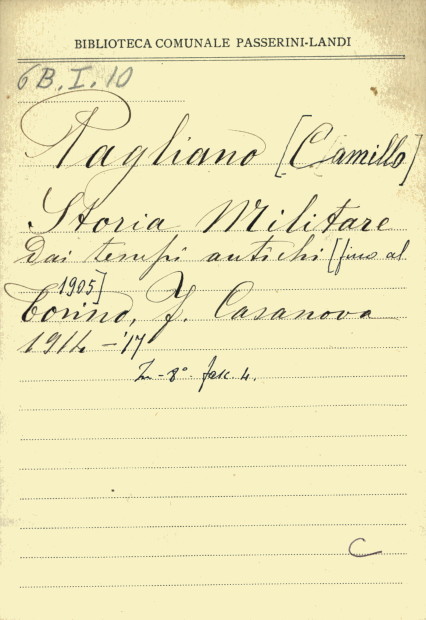 BIBLIOTECA COMUNALE PASSERINI-LANDI
6B.I.10
Pagliano [Camillo]
Storia Militare
Dai tempi antichi [fino al
1905]
Torino, F. Casanova
1914-'17
In-8° fasc. 4.
C